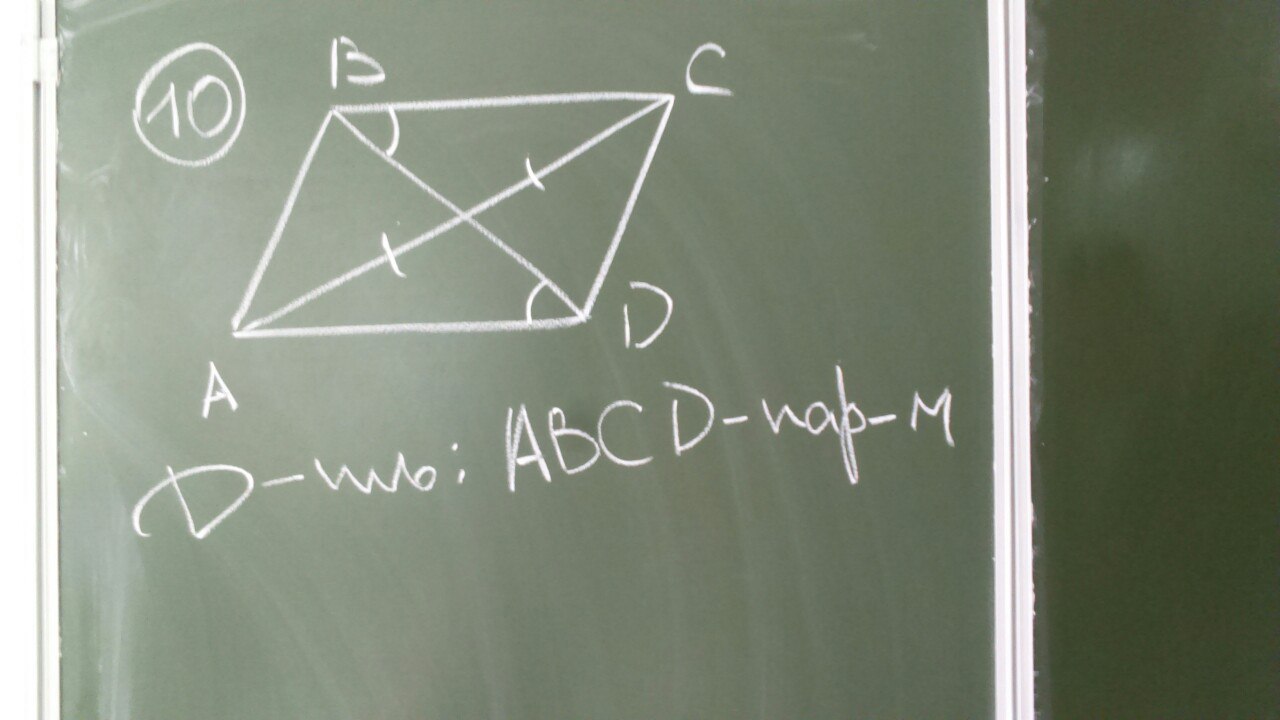 10
B
C
A
D
D-ть: ABCD-пар-м